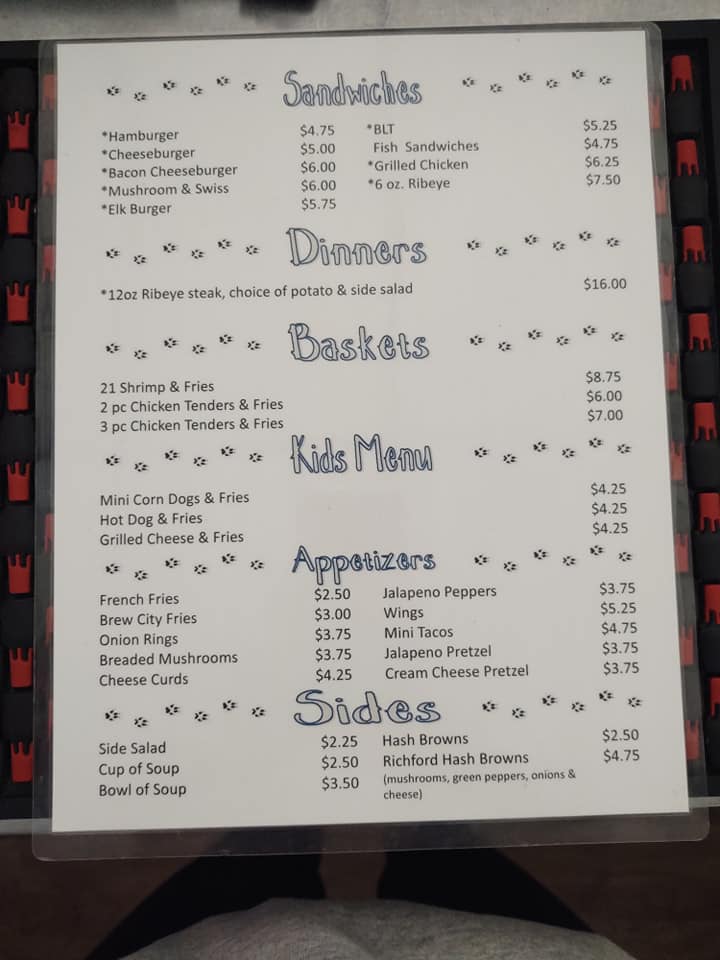 Sandwiches
*Hamburger $4.75 *BLT $5.25
*Cheeseburger $5.00 Fish Sandwiches $4.75
*Bacon Cheeseburger $6.00 *Grilled Chicken $6.25
*Mushroom & Swiss $6.00 *6 oz. Ribeye $7.50
*Elk Burger $5.75
Dinners
*12oz Ribeye steak, choice of potato & side salad $16.00
Baskets
21 Shrimp & Fries $8.75
2 pc Chicken Tenders & Fries $6.00
3 pc Chicken Tenders & Fries $7.00
Kids Menu
Mini Corn Dogs & Fries $4.25
Hot Dog & Fries $4.25
Grilled Cheese & Fries $4.25
Appetizers
French Fries $2.50 Jalapeno Peppers $3.75
Brew City Fries $3.00 Wings $5.25
Onion Rings $3.75 Mini Tacos $4.75
Breaded Mushrooms $3.75 Jalapeno Pretzel $3.75
Cheese Curds $4.25 Cream Cheese Pretzel $3.75
Sides
Side Salad $2.25 Hash Browns $2.50
Cup of Soup $2.50 Richford Hash Browns $4.75
Bowl of Soup $3.50 (mushrooms, green peppers, onions &
cheese)